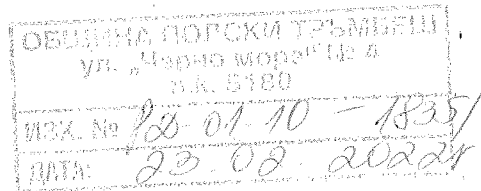 ОБЩИНА ПОЛСКИ ТРЪМБЕШ
ул. „Черно море“ № 4
п.к. 5180
ИЗХ. № РД-01-10-1835/
ДАТА: 23.02.2022г